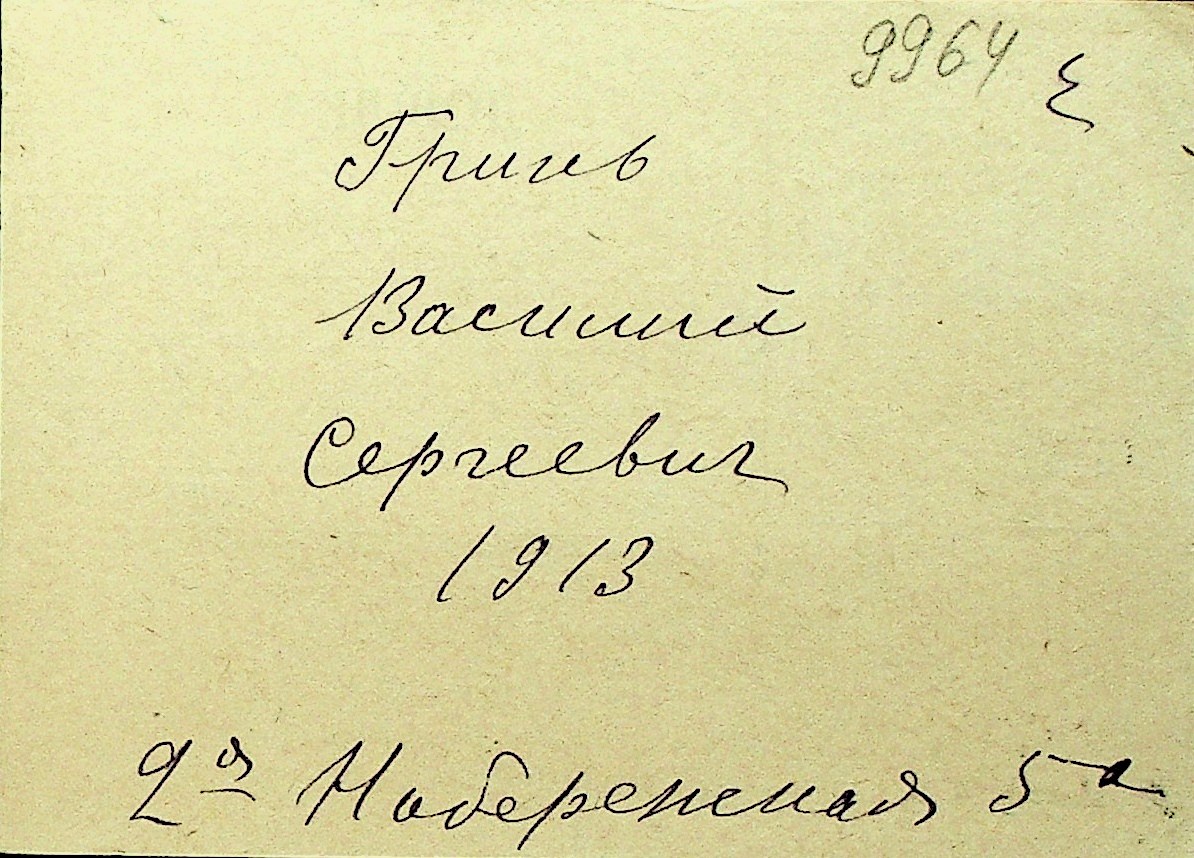 9964
Гринь
Василий
Сергеевич
1913
2ая Набережная 5а